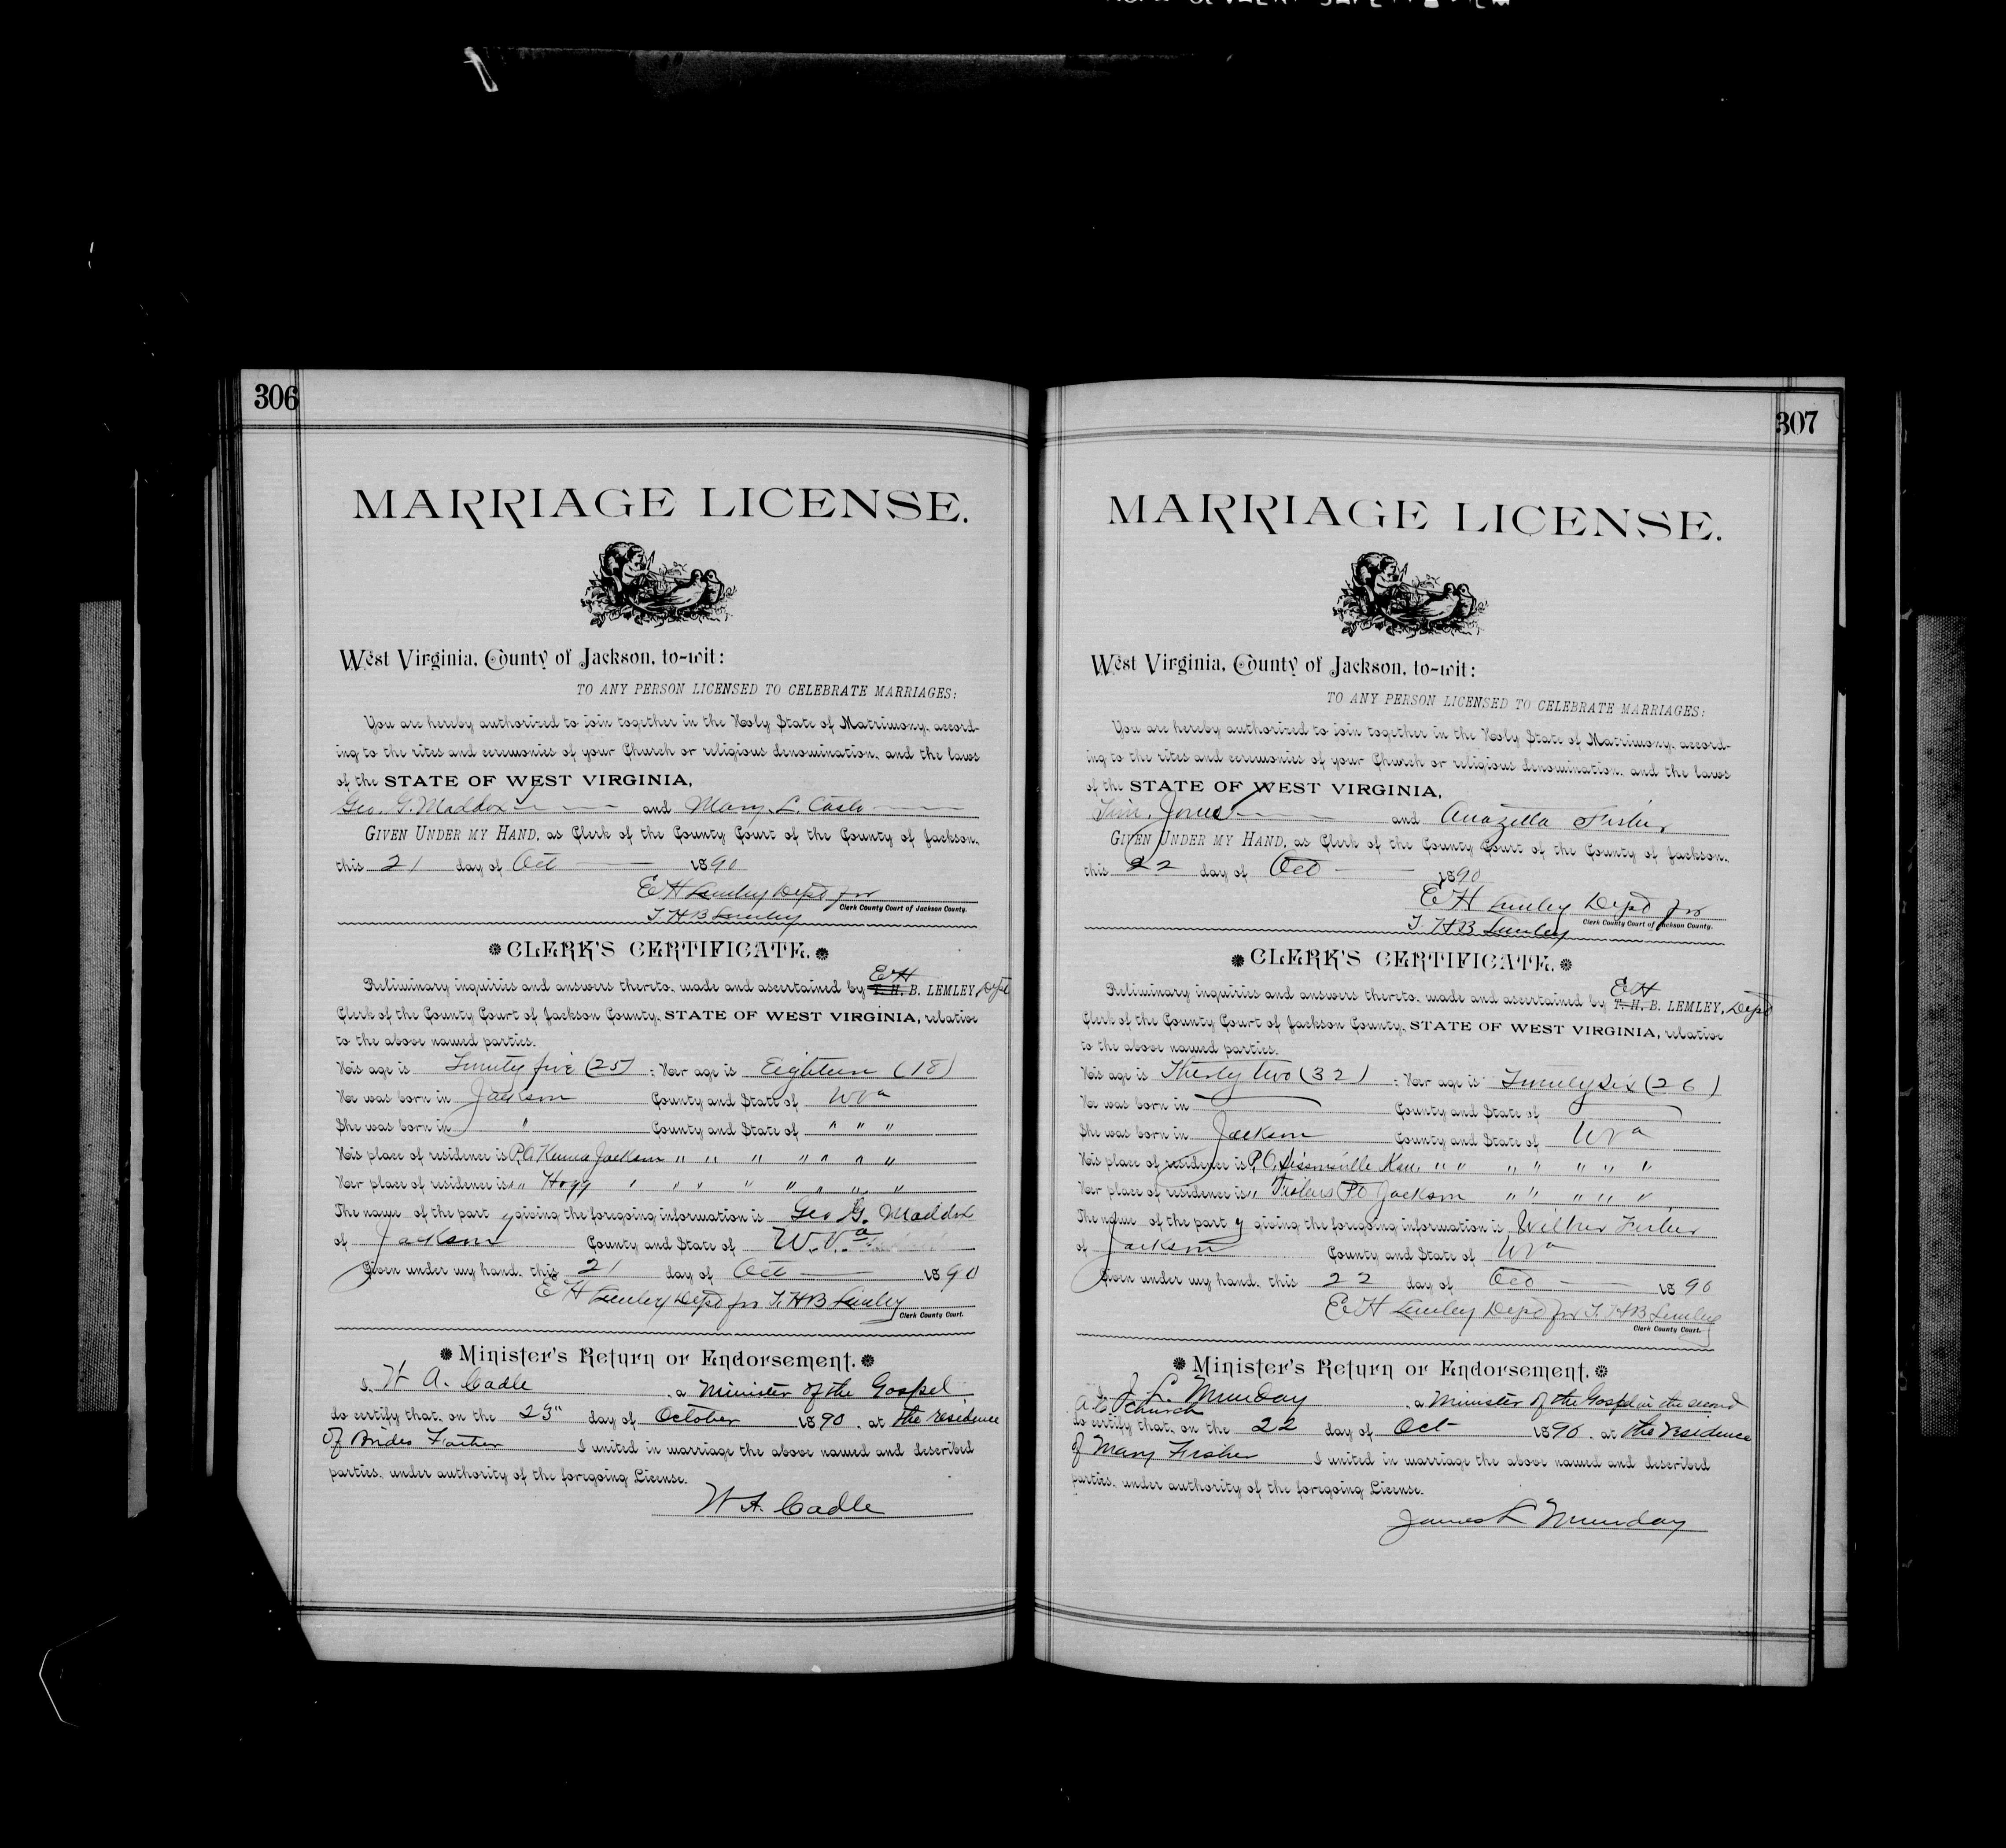 306
MARRIAGE LICENSE.
West Virginia, County of Jackson, to-wit:
TO ANY PERSON LICENSED TO CELEBRATE MARRIAGES:
You are hereby authorized to join together in the Holy State of Matrimony, accord-
ing to the rites and ceremonies of your Church or religious denomination, and the laws
of the STATE OF WEST VIRGINIA,
Geo. G. Maddox and Mary L. Casto
GIVEN UNDER MY HAND, as Clerk of the County Court of the County of Jackson,
this 21 day of Oct 1890
E H Lemley Dept for
T. H B Lemley Clerk County Court of Jackson County.
CLERK'S CERTIFICATE.
E H
Preliminary inquiries and answers thereto, made and ascertained by T. H. B. LEMLEY, Dept
Clerk of the County Court of Jackson County, STATE OF WEST VIRGINIA, relative
to the above named parties.
His age is Twenty five (25) : Her age is Eighteen (18)
He was born in Jackson County and State of WVa
She was born in " County and State of " " "
His place of residence is P.O. Kenna Jackson " " " " " " "
Her place of residence is " " Hogg " " " " " " " "
The name of the part y giving the foregoing information is Geo G. Maddox
of Jackson County and State of W.Va
Given under my hand, this 21 day of Oct 1890
E H Lemley Dept for T. H B Lemley
Clerk County Court.
Minister's Return or Endorsement.
I, W A. Cadle , a Minister of the Gospel
do certify that, on the 23" day of October 1890, at the residence
of Brides Father I united in marriage the above named and described
parties, under authority of the foregoing License.
W A. Cadle
307
MARRIAGE LICENSE.
West Virginia, County of Jackson, to-wit:
TO ANY PERSON LICENSED TO CELEBRATE MARRIAGES:
You are hereby authorized to join together in the Holy State of Matrimony, accord-
ing to the rites and ceremonies of your Church or religious denomination, and the laws
of the STATE OF WEST VIRGINIA,
Tim. Jones and Anazetta Fisher
GIVEN UNDER MY HAND, as Clerk of the County Court of the County of Jackson,
this 22 day of Oct 1890
E H Lemley Dept for
T. H B Lemley Clerk County Court of Jackson County.
CLERK'S CERTIFICATE.
E H
Preliminary inquiries and answers thereto, made and ascertained by T. H. B. LEMLEY, Dept
Clerk of the County Court of Jackson County, STATE OF WEST VIRGINIA, relative
to the above named parties.
His age is Thirty two (32) : Her age is Twenty Six (26)
He was born in County and State of
She was born in Jackson County and State of WVa
His place of residence is P.O. Sissonville Kan. " " " " " " "
Her place of residence is " Fishers P.O Jackson " " " " "
The name of the part y giving the foregoing information is Wilber Fisher
of Jackson County and State of WVa
Given under my hand, this 22 day of Oct 1890
E H Lemley Dept for T. H B Lemley
Clerk County Court.
Minister's Return or Endorsement.
I, J L. Munday , a Minister of the Gospel in the second
A. C. Church
do certify that, on the 22 day of Oct 1890, at the residence
of Mary Fisher I united in marriage the above named and described
parties, under authority of the foregoing License.
James L Munday